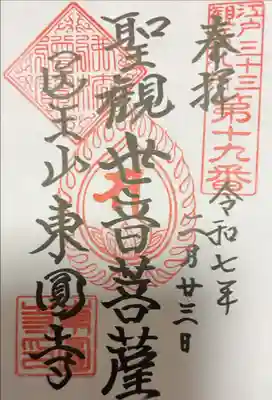 江戸三十三
第十九番
奉拝
令和七年
二月廿三日
聖觀世音菩薩
医王山東圓寺